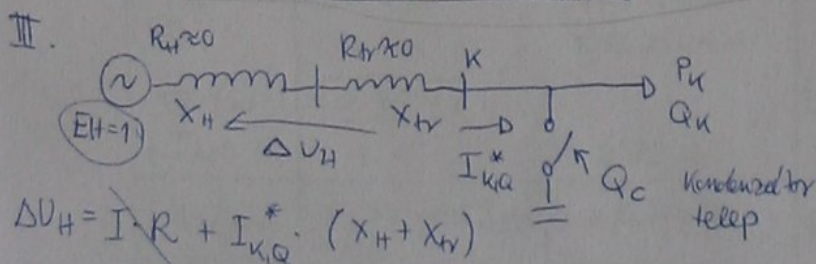 III.
R_H≈0 R_tr≈0 K P_K
~ Q_K
E_H=1 X_H X_tr
ΔU_H I*_K,Q Q_C Kondenzátor
telep
ΔU_H = I·R + I*_K,Q · (X_H + X_tr)